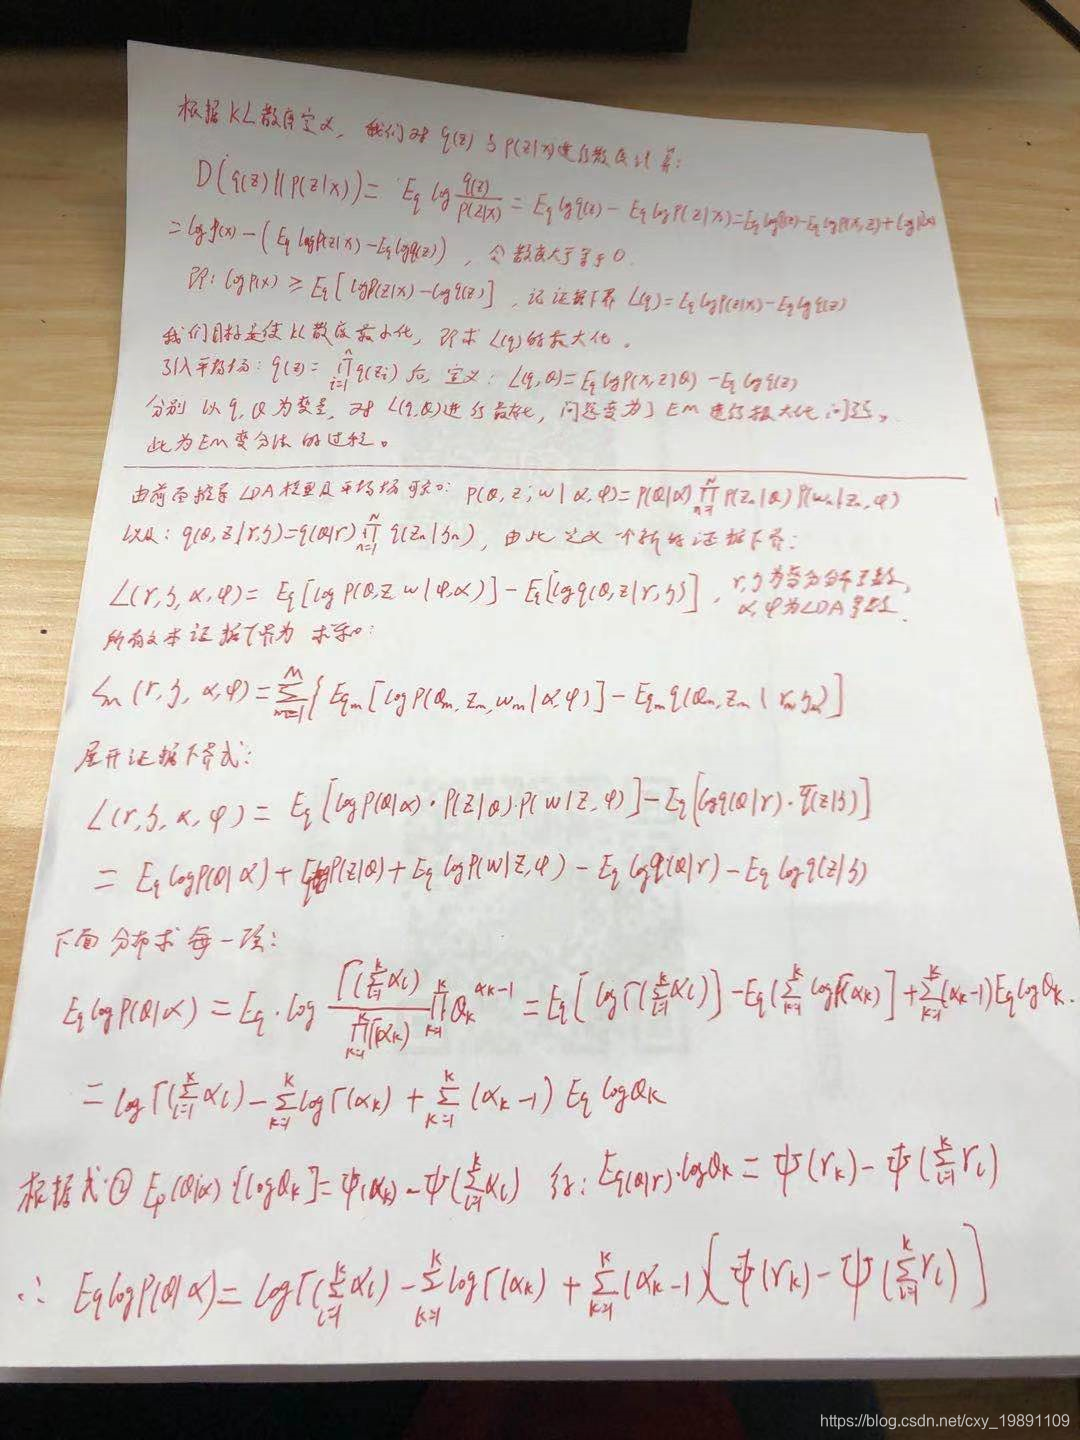 根据KL散度定义，我们对q(z)与P(z|x)进行散度计算：
D(q(z)||P(z|x)) = Eq log q(z)/P(z|x) = Eq log q(z) - Eq log P(z|x) = Eq log q(z) - Eq log P(x,z) + log P(x)
= log P(x) - (Eq log P(z|x) - Eq log q(z))，令散度大于等于0.
即：log P(x) ≥ Eq[log P(z|x) - log q(z)]，记证据下界 L(q) = Eq log P(z|x) - Eq log q(z)
我们目标是使KL散度最小化，即求L(q)的最大化。
引入平均场：q(z) = ∏_{i=1}^{n} q(z_i) 后，定义：L(q,θ) = Eq log P(x,z|θ) - Eq log q(z)
分别以q,θ为变量，对L(q,θ)进行最大化，问题变为了EM进行极大化问题，
此为EM变分法的过程。
由前面推导LDA模型及平均场可知：P(θ,z,w|α,φ) = P(θ|α) ∏_{n=1}^{N} P(z_n|θ) P(w_n|z_n,φ)
以及：q(θ,z|r,ζ) = q(θ|r) ∏_{n=1}^{N} q(z_n|ζ_n)，由此定义一个新的证据下界：
L(r,ζ,α,φ) = Eq[log P(θ,z,w|φ,α)] - Eq[log q(θ,z|r,ζ)]，r,ζ为变分分布参数，
α,φ为LDA参数.
所有文本证据下界为求和：
L_m(r,ζ,α,φ) = ∑_{m=1}^{M} { Eq_m[log P(θ_m,z_m,w_m|α,φ)] - Eq_m q(θ_m,z_m|r_m,ζ_m)]
展开证据下界式：
L(r,ζ,α,φ) = Eq[log P(θ|α)·P(z|θ)·P(w|z,φ)] - Eq[log q(θ|r)·q(z|ζ)]
= Eq log P(θ|α) + Eq log P(z|θ) + Eq log P(w|z,φ) - Eq log q(θ|r) - Eq log q(z|ζ)
下面分布求每一项：
Eq log P(θ|α) = Eq·log Γ(∑_{l=1}^{K} α_l)/∏_{k=1}^{K} Γ(α_k) ∏_{k=1}^{K} θ_k^{α_k-1} = Eq[log Γ(∑_{l=1}^{K} α_l)] - Eq(∑_{k=1}^{K} log Γ(α_k)] + ∑_{k=1}^{K} (α_k-1) Eq log θ_k.
= log Γ(∑_{l=1}^{K} α_l) - ∑_{k=1}^{K} log Γ(α_k) + ∑_{k=1}^{K} (α_k-1) Eq log θ_k
根据式② E_{P(θ|α)}·[log θ_k] = ψ(α_k) - ψ(∑_{l=1}^{K} α_l) 得：E_{q(θ|r)}·log θ_k = ψ(r_k) - ψ(∑_{l=1}^{K} r_l)
∴ Eq log P(θ|α) = log Γ(∑_{l=1}^{K} α_l) - ∑_{k=1}^{K} log Γ(α_k) + ∑_{k=1}^{K} (α_k-1) [ψ(r_k) - ψ(∑_{l=1}^{K} r_l)]
https://blog.csdn.net/cxy_19891109